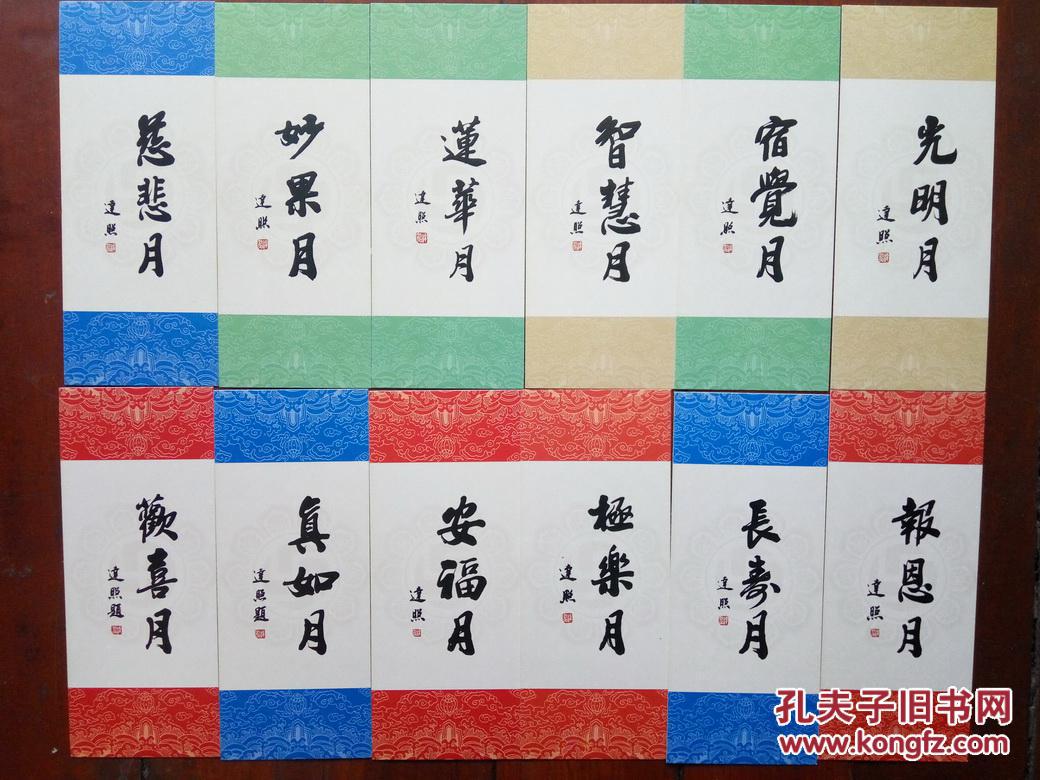 慈悲月
達照
妙果月
達照
蓮華月
達照
智慧月
達照
宿覺月
達照
光明月
達照
歡喜月
達照題
真如月
達照題
安福月
達照
極樂月
達照
長壽月
達照
報恩月
達照
孔夫子旧书网
www.kongfz.com